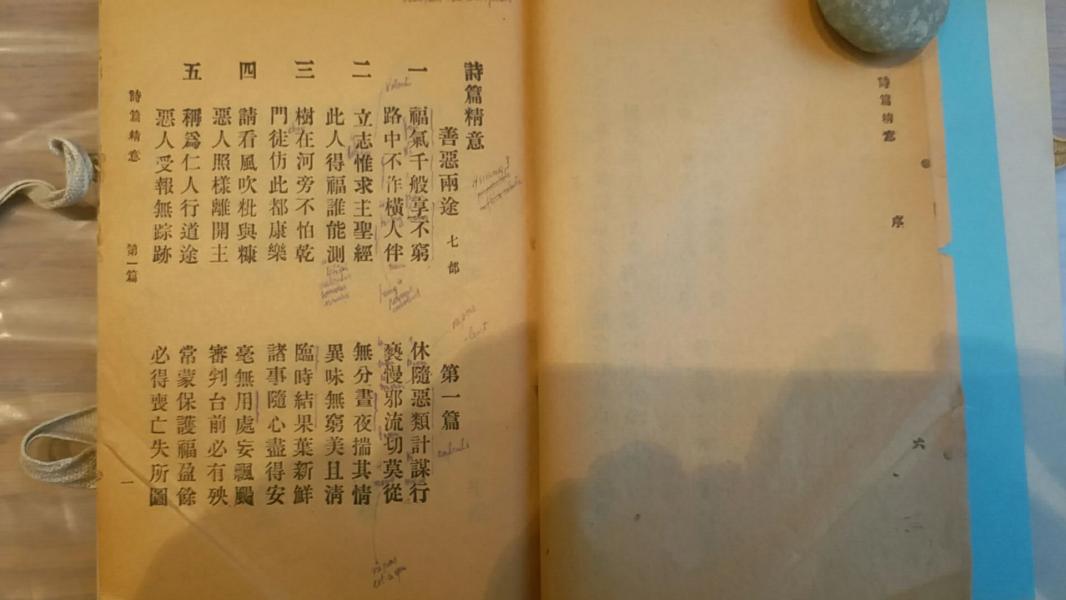 詩篇精意 序 六
詩篇精意
善惡兩途 七部 第一篇
一 福氣千般享不窮 休隨惡類計謀行
路中不作橫人伴 褻慢邪流切莫從
二 立志惟求主聖經 無分晝夜揣其情
此人得福誰能測 異味無窮美且清
三 樹在河旁不怕乾 臨時結果葉新鮮
門徒仿此都康樂 諸事隨心盡得安
四 請看風吹粃與糠 毫無用處妄飄颺
惡人照樣離開主 審判台前必有殃
五 稱爲仁人行道途 常蒙保護福盈餘
惡人受報無踪跡 必得喪亡失所圖
詩篇精意 第一篇 一